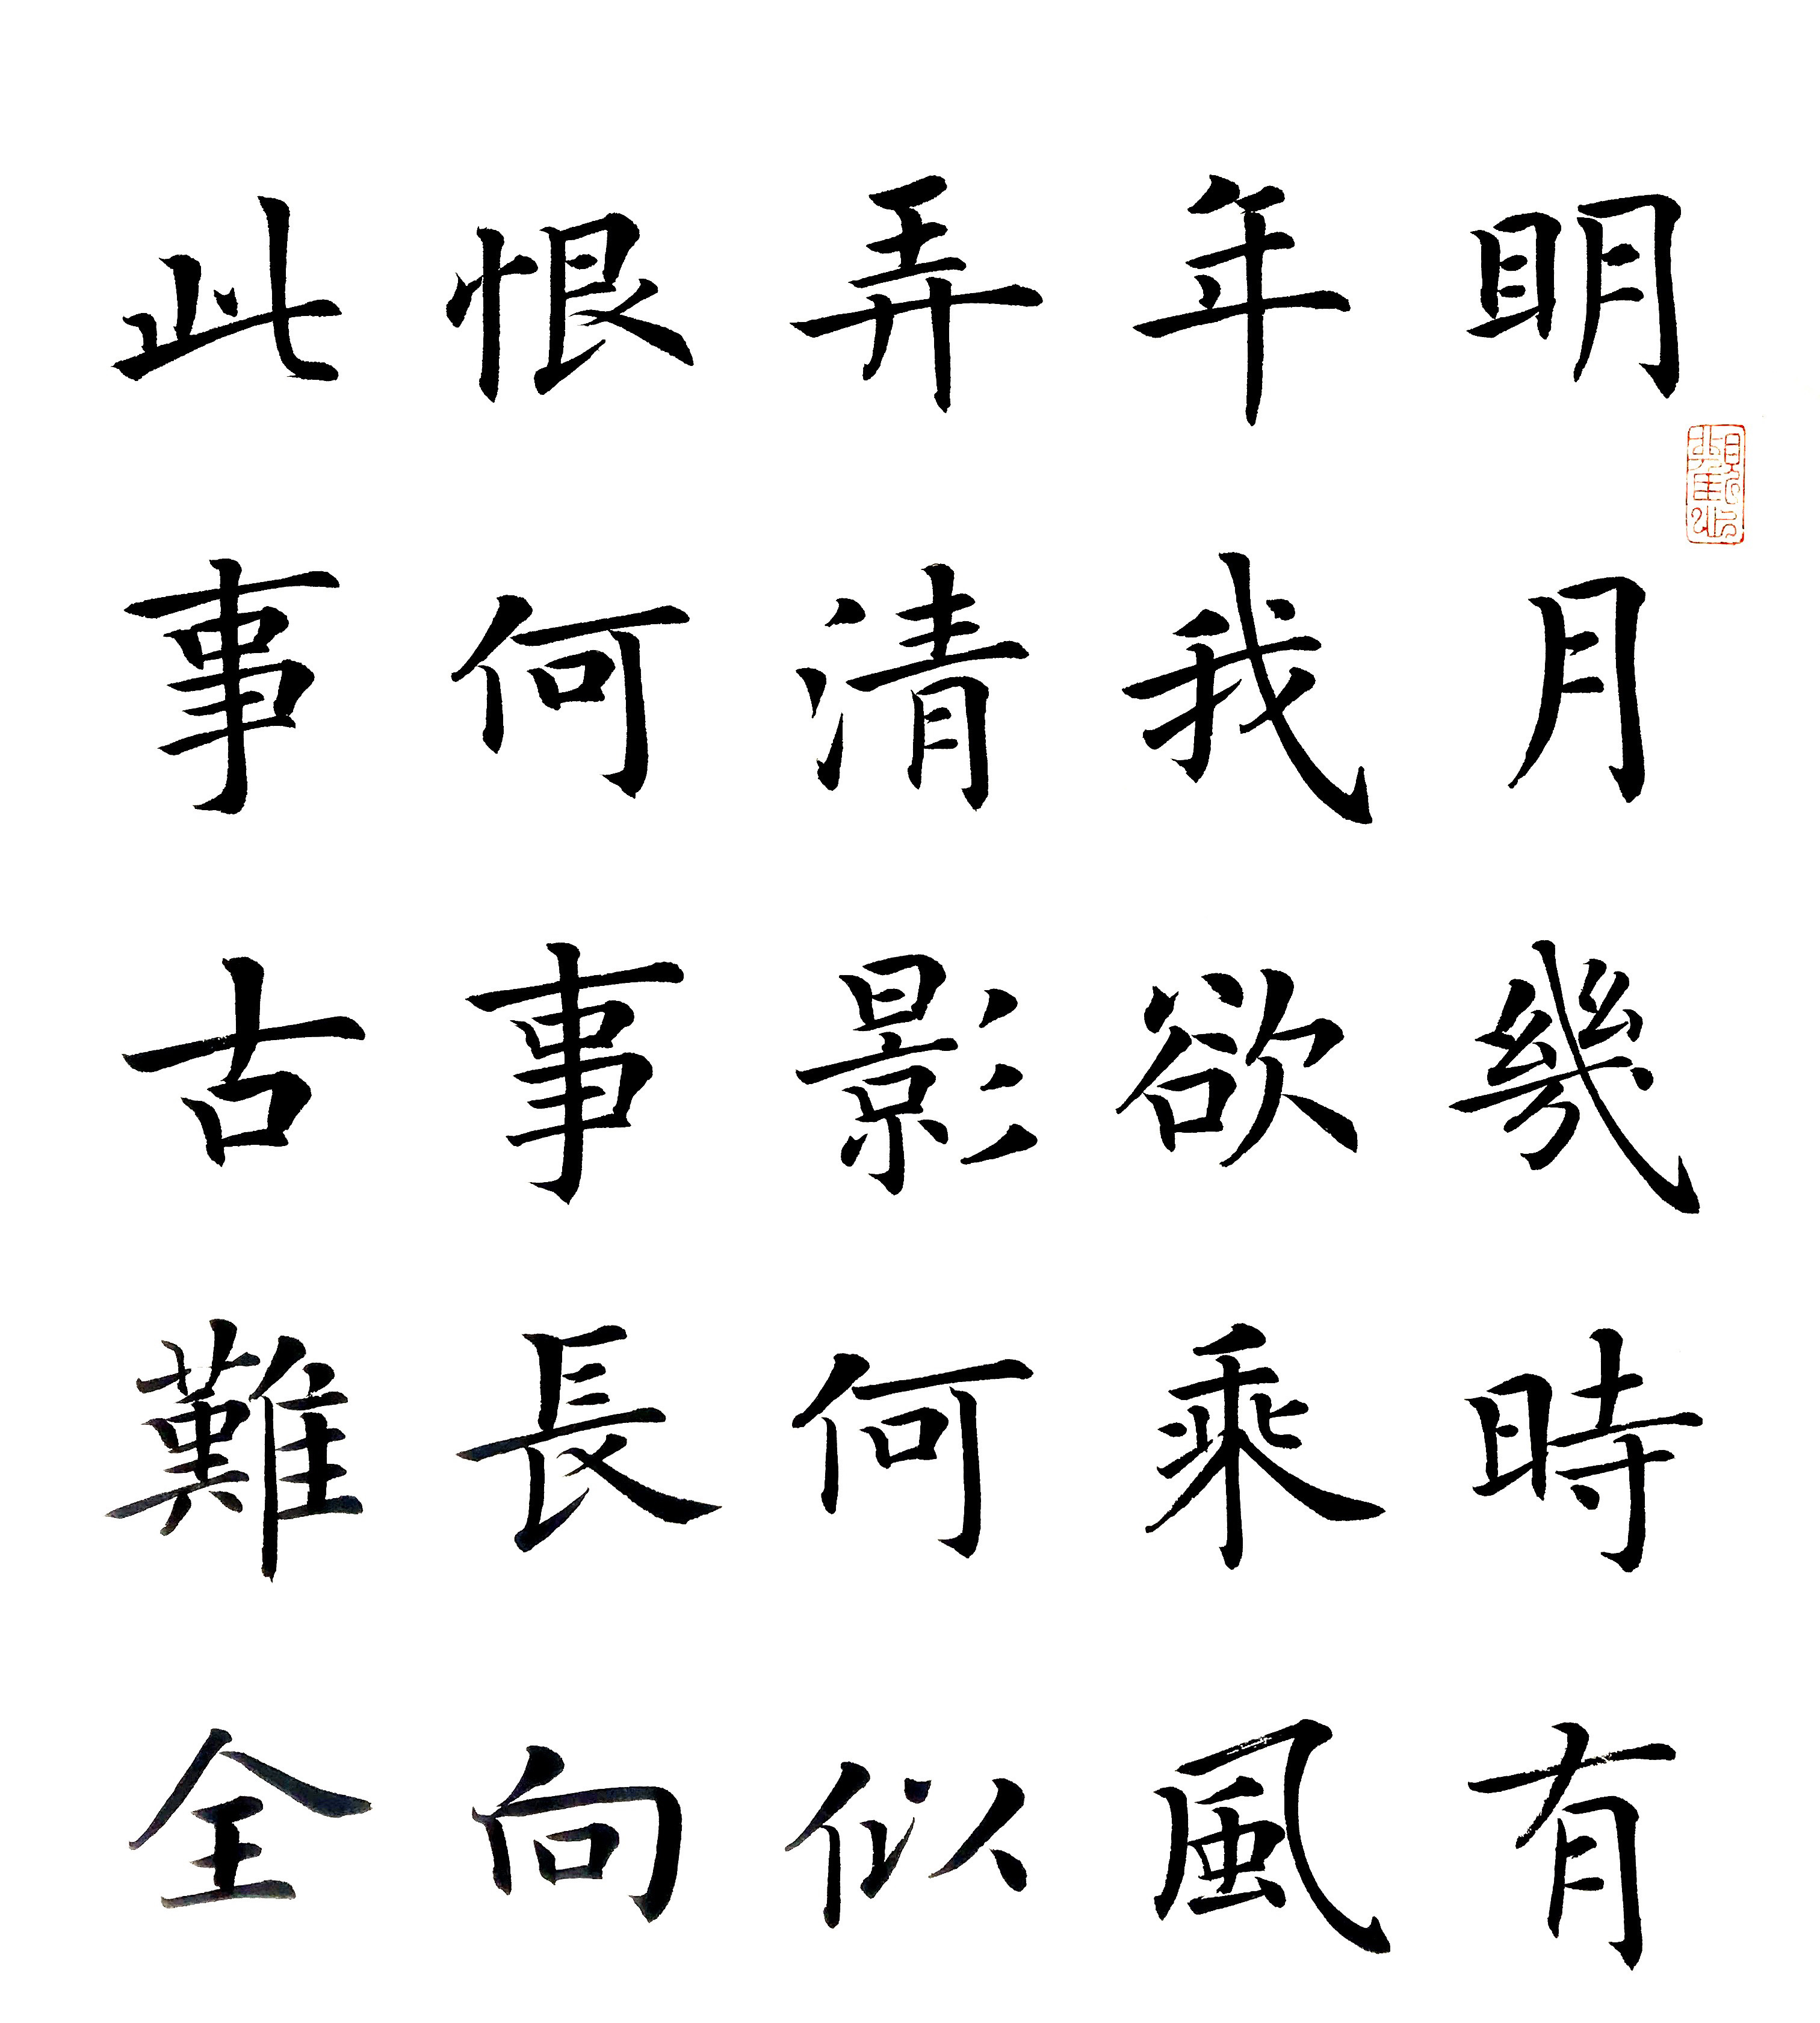 明月幾時有
年我欲乘風
弄清影何似
恨何事長向
此事古難全